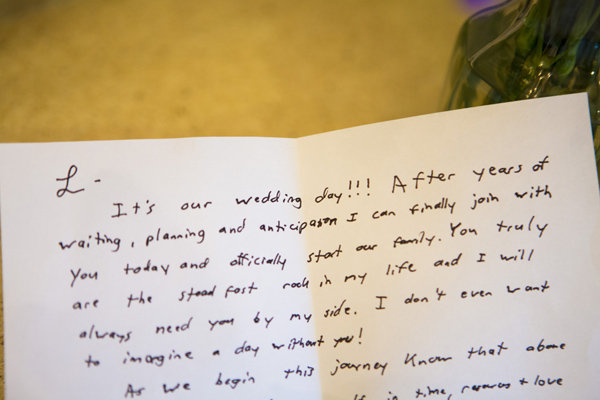 L-
It's our wedding day!!! After years of
waiting, planning and anticipation I can finally join with
you today and officially start our family. You truly
are the steadfast rock in my life and I will
always need you by my side. I don't even want
to imagine a day without you!
As we begin this journey know that above
in time, + love